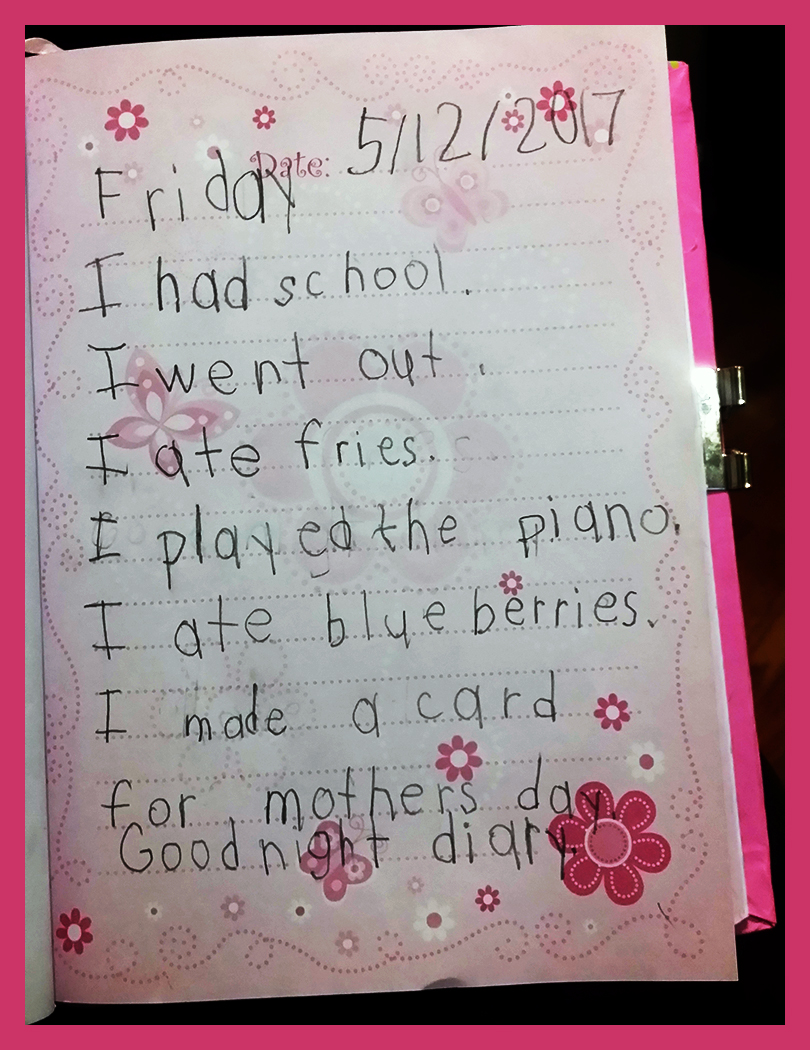 Date: 5/12/2017
Friday
I had school.
I went out.
I ate fries.
I played the piano.
I ate blueberries.
I made a card
for mothers day
Good night diary.